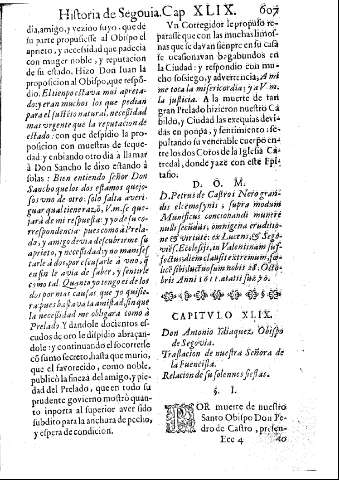 Historia de Segovia. Cap XLIX. 607
dia, amigo, y vezino suyo, que de
su parte propusiesse al Obispo el
aprieto, y necesidad que padecia
con muger noble, y reputacion
de su estado. Hizo Don Iuan la
proposicion al Obispo, que respõ-
dio, El tienpo estava mui apre-
tado; eran muchos los que pedian
para el justicio natural, necesidad
mas vrgente que la reputacion de
estado: con que despidio la pro-
posicion con muestras de seque-
dad y enbiando otro dia à llamar
à Don Sancho le dixo estando à
solas: Bien entiendo señor Don
Sancho que los dos estamos quejo-
sos vno de otro: solo falta averi-
guar qual tiene razõ, V.m. se que-
jarà de mi respuesta: y yo de su co-
rrespondencia: pues como à Prela-
do, y amigo devia descubrirme su
aprieto, y necesidad y no manifes-
tarle à dos por escusarle à vno, q̃
en fin le avia de saber, y sentirle
como tal Quanto yo tengo es de los
dos por mas causas que yo quisie-
ra pues bastava la amistad, sin que
la necesidad me obligara como à
Prelado Y dandole docientos es-
cudos de oro le dispidio abraçan-
dole: y continuando el socorrelle
cõ sumo secreto, hasta que murio,
que el favorecido, como noble,
publicò la fineça del amigo, y pie-
dad del Prelado, que en todo su
prudente govierno mostrò quan-
to inporta al superior aver sido
subdito para la anchura de pecho,
y espera de condicion.
Vn Corregidor le propuso re-
parasse que con las muchas limos-
nas que se davan sienpre en su casa
se ocasionavan begabundos en
la Ciudad: y respondio con mu-
cho sosiego, y advertencia, A mi
me toca la misericordia; y a V m.
la justicia. A la muerte de tan
gran Prelado hizieron nuestro Ca-
bildo, y Ciudad las exequias devi-
das en ponpa, y sentimiento: se-
pultando su venerable cuerpo en-
tre los dos Coros de la Iglesia Ca-
tedral, donde yaze con este Epi-
tafio.
D. O. M.
D. Petrus de Castroi Nero gran-
dis eleemosynis, supra modum
Munificus concionandi munere
nulli secũdus, omnigena eruditio-
ne & virtute: ex Lucens, & Segó-
viẽs. Ecclesijs, in Valentinam suf-
fectus diem clausit extremum, fæ-
licẽ sibi luctuosum nobis 28. Octo-
bris Anni 1611. ætatis suæ 70.
CAPITVLO XLIX.
Don Antonio Ydiaquez, Obispo
de Segovia.
Traslacion de nuestra Señora de
la Fuencisla.
Relacion de su solennes fiestas.
§. I.
POR muerte de nuestro
Santo Obispo Don Pe-
dro de Castro, presen-
Eee 4 tò